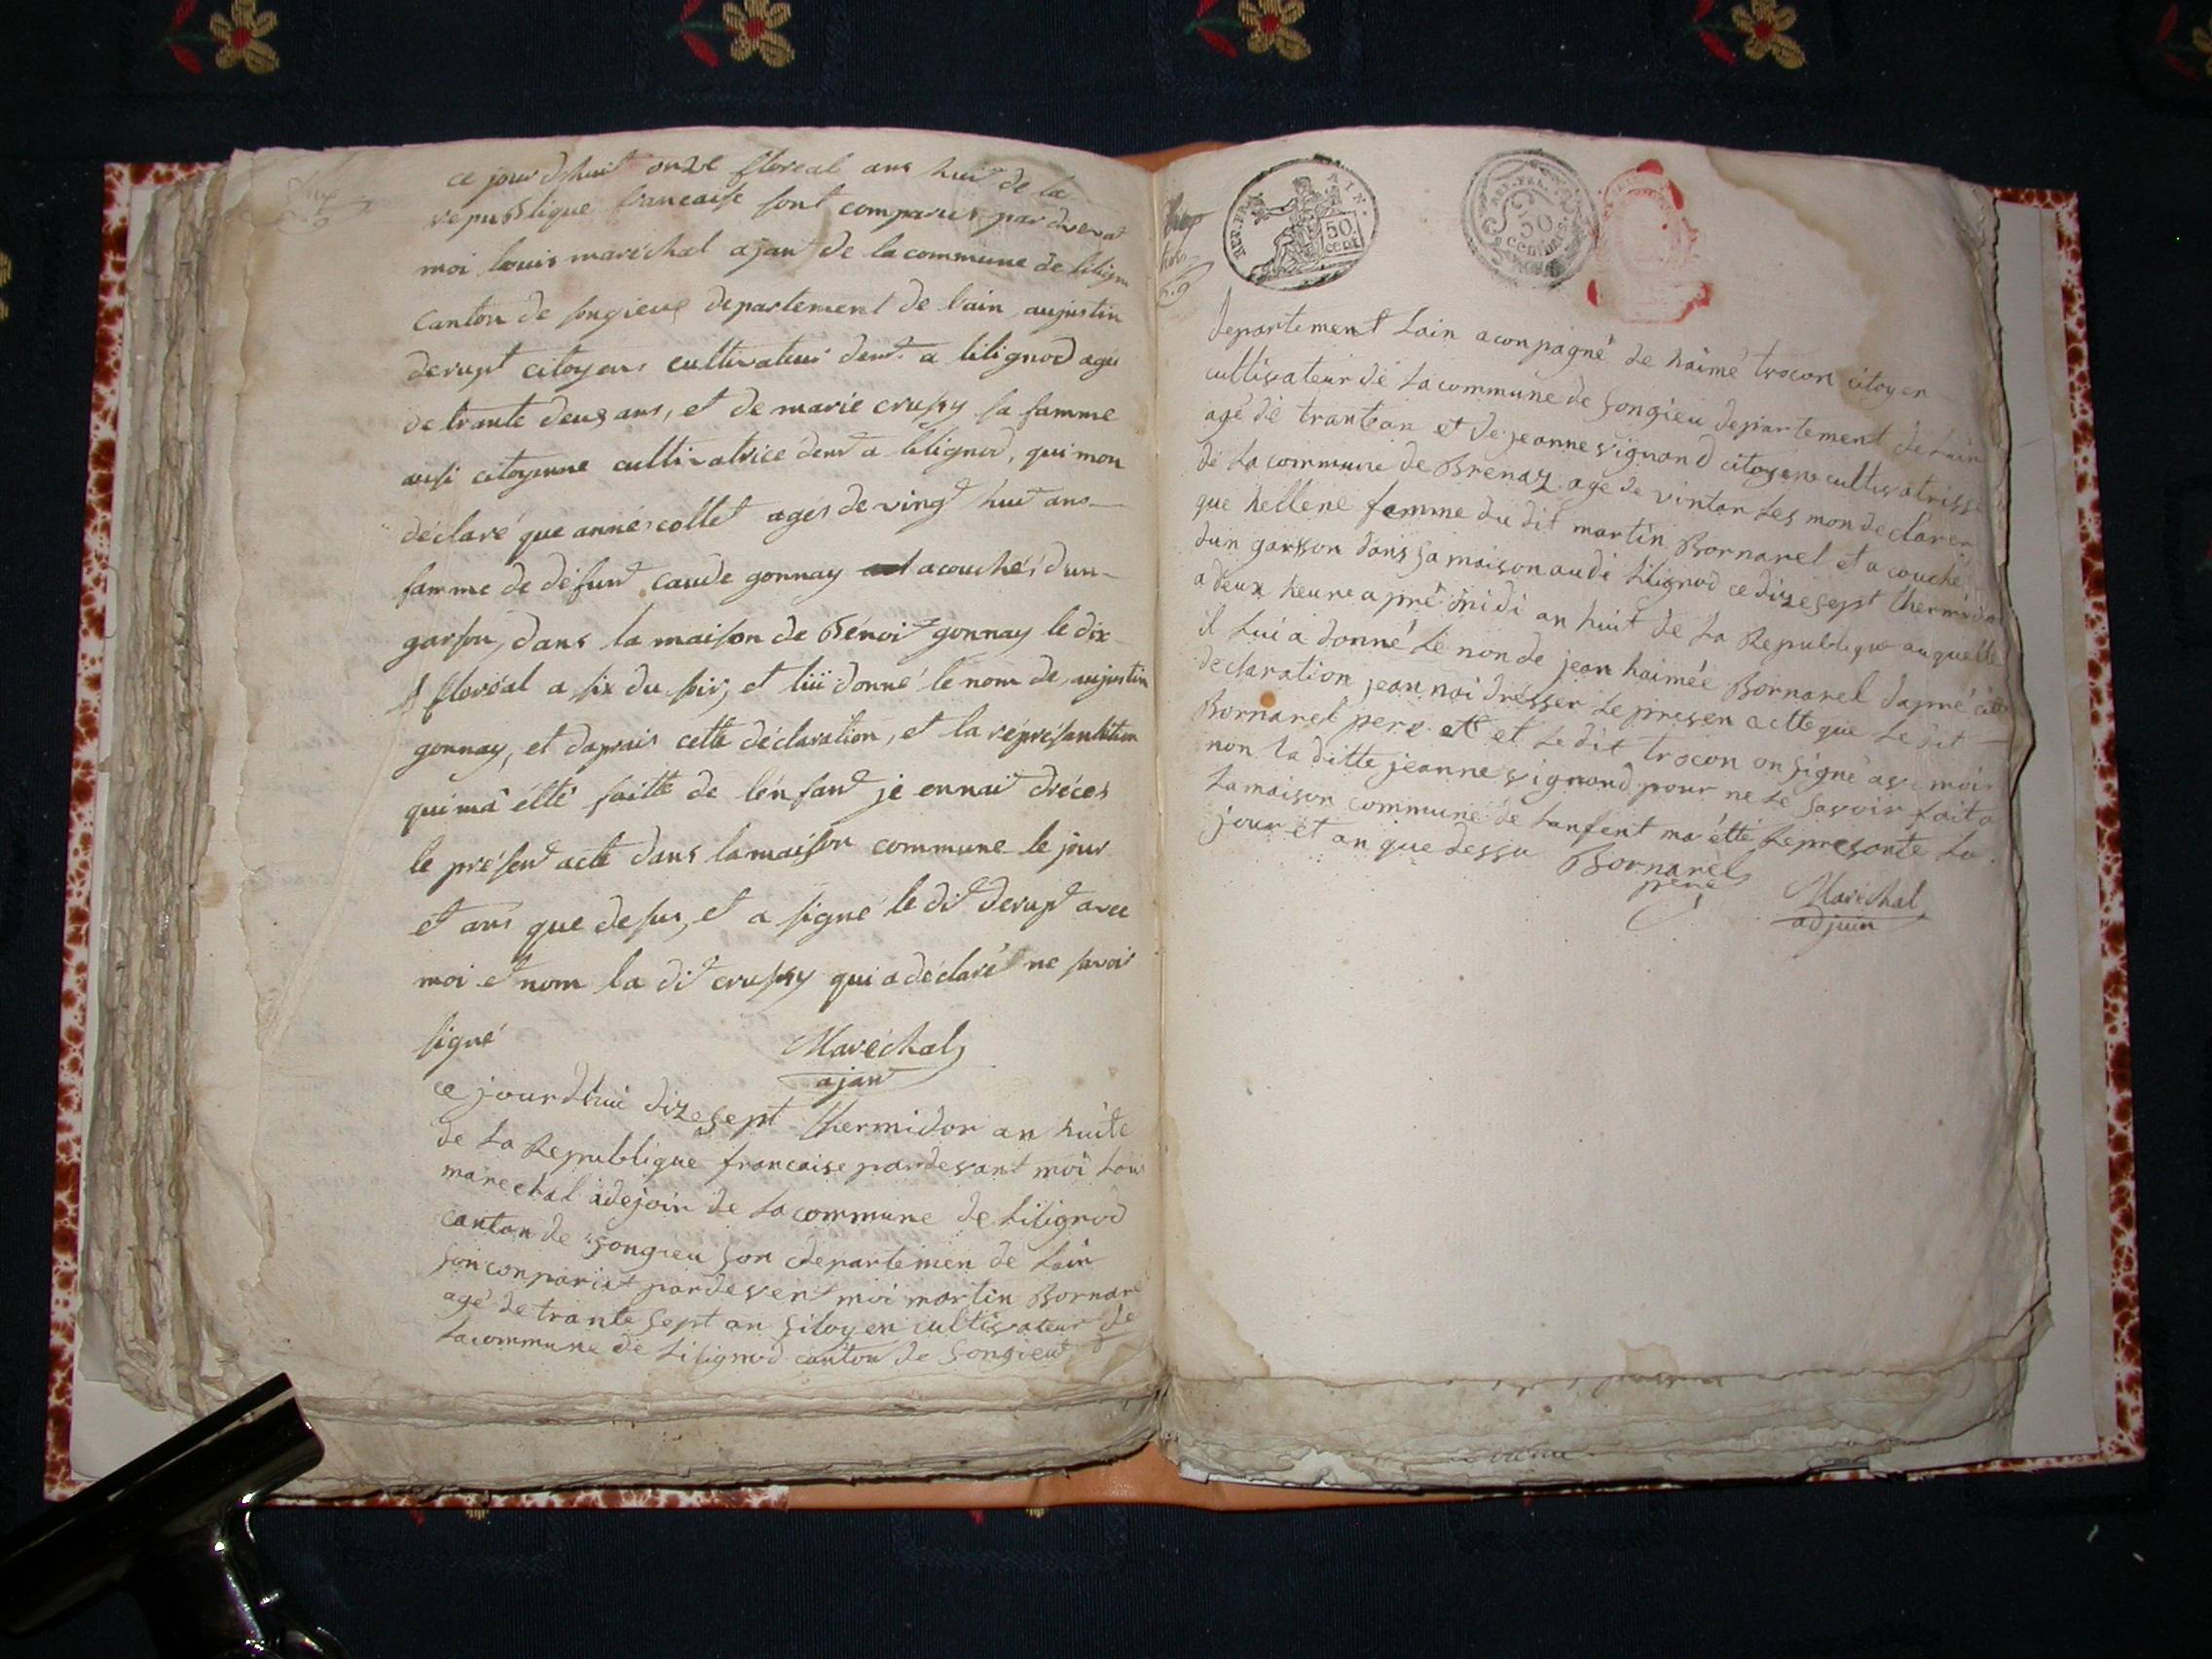 ce jour dhuit onze floreal ans huit de la
republique francaise sont comparus par devent
moi louis maréchal ajant de la commune de lilignod
canton de songieux departement de lain, aujustin
derupt citoyens cultivateur demt a lilignod agé
de trante deux ans, et de marie crussy sa famme
ausi citoyenne cultivatrice demt a lilignod, qui mon
déclaré que anne collet agés de vingt huit ans
famme de défunt caude gonnay acouchés dun
garson, dans la maison de Bénoit gonnay le dix
floréal a six du soir, et lui donné le nom de aujustin
gonnay, et daprais cette déclaration, et la réprésantation
qui ma étté faitte de lénfant je ennait dréces
le présent acte dans la maison commune le jour
et ans que desus, et a signé le dit derupt avec
moi et nom la dit crussy qui a déclaré ne savoir
signé
Maréchal
ajant
ce jourdhui dizesept thermidor an huite
de la Republique francaise pardevant moi loui
marechal adejoin de la commune de lilignod
canton de songieu son departemen de lain
son conparut pardevent moi martin Bornarel
agé de trante sept an sitoyen cultivateur de
la commune de lilignod canton de songieut
REP. FRA. AIN.
50 cent
REP. FRA.
50 CENTIMES
departement lain aconpagné de haimé trocon citoyen
cultivateur de la commune de songieu departement de lain
agé de trantean et de jeanne vignond citoyene cultivatrisse
de la commune de Brenaz age de vintan les mon declarer
que hellene famme du dit martin Bornarel et a couché
dun garsson dans sa maison audi lilignod ce dizesept thermidor
a deux heure apré midi an huit de la Republique auquelle
il lui a donné le non de jean haimée Bornarel dapré cette
declaration jean nai dresser le presen acttte que le dit
Bornarel pere et et le dit trocon on signé avc moi
non la ditte jeanne vignond pour ne le savoir fait a
la maison commune de lanfent ma étté represanté le
jour et an que dessu
Bornarel
pere
Maréchal
adjuin